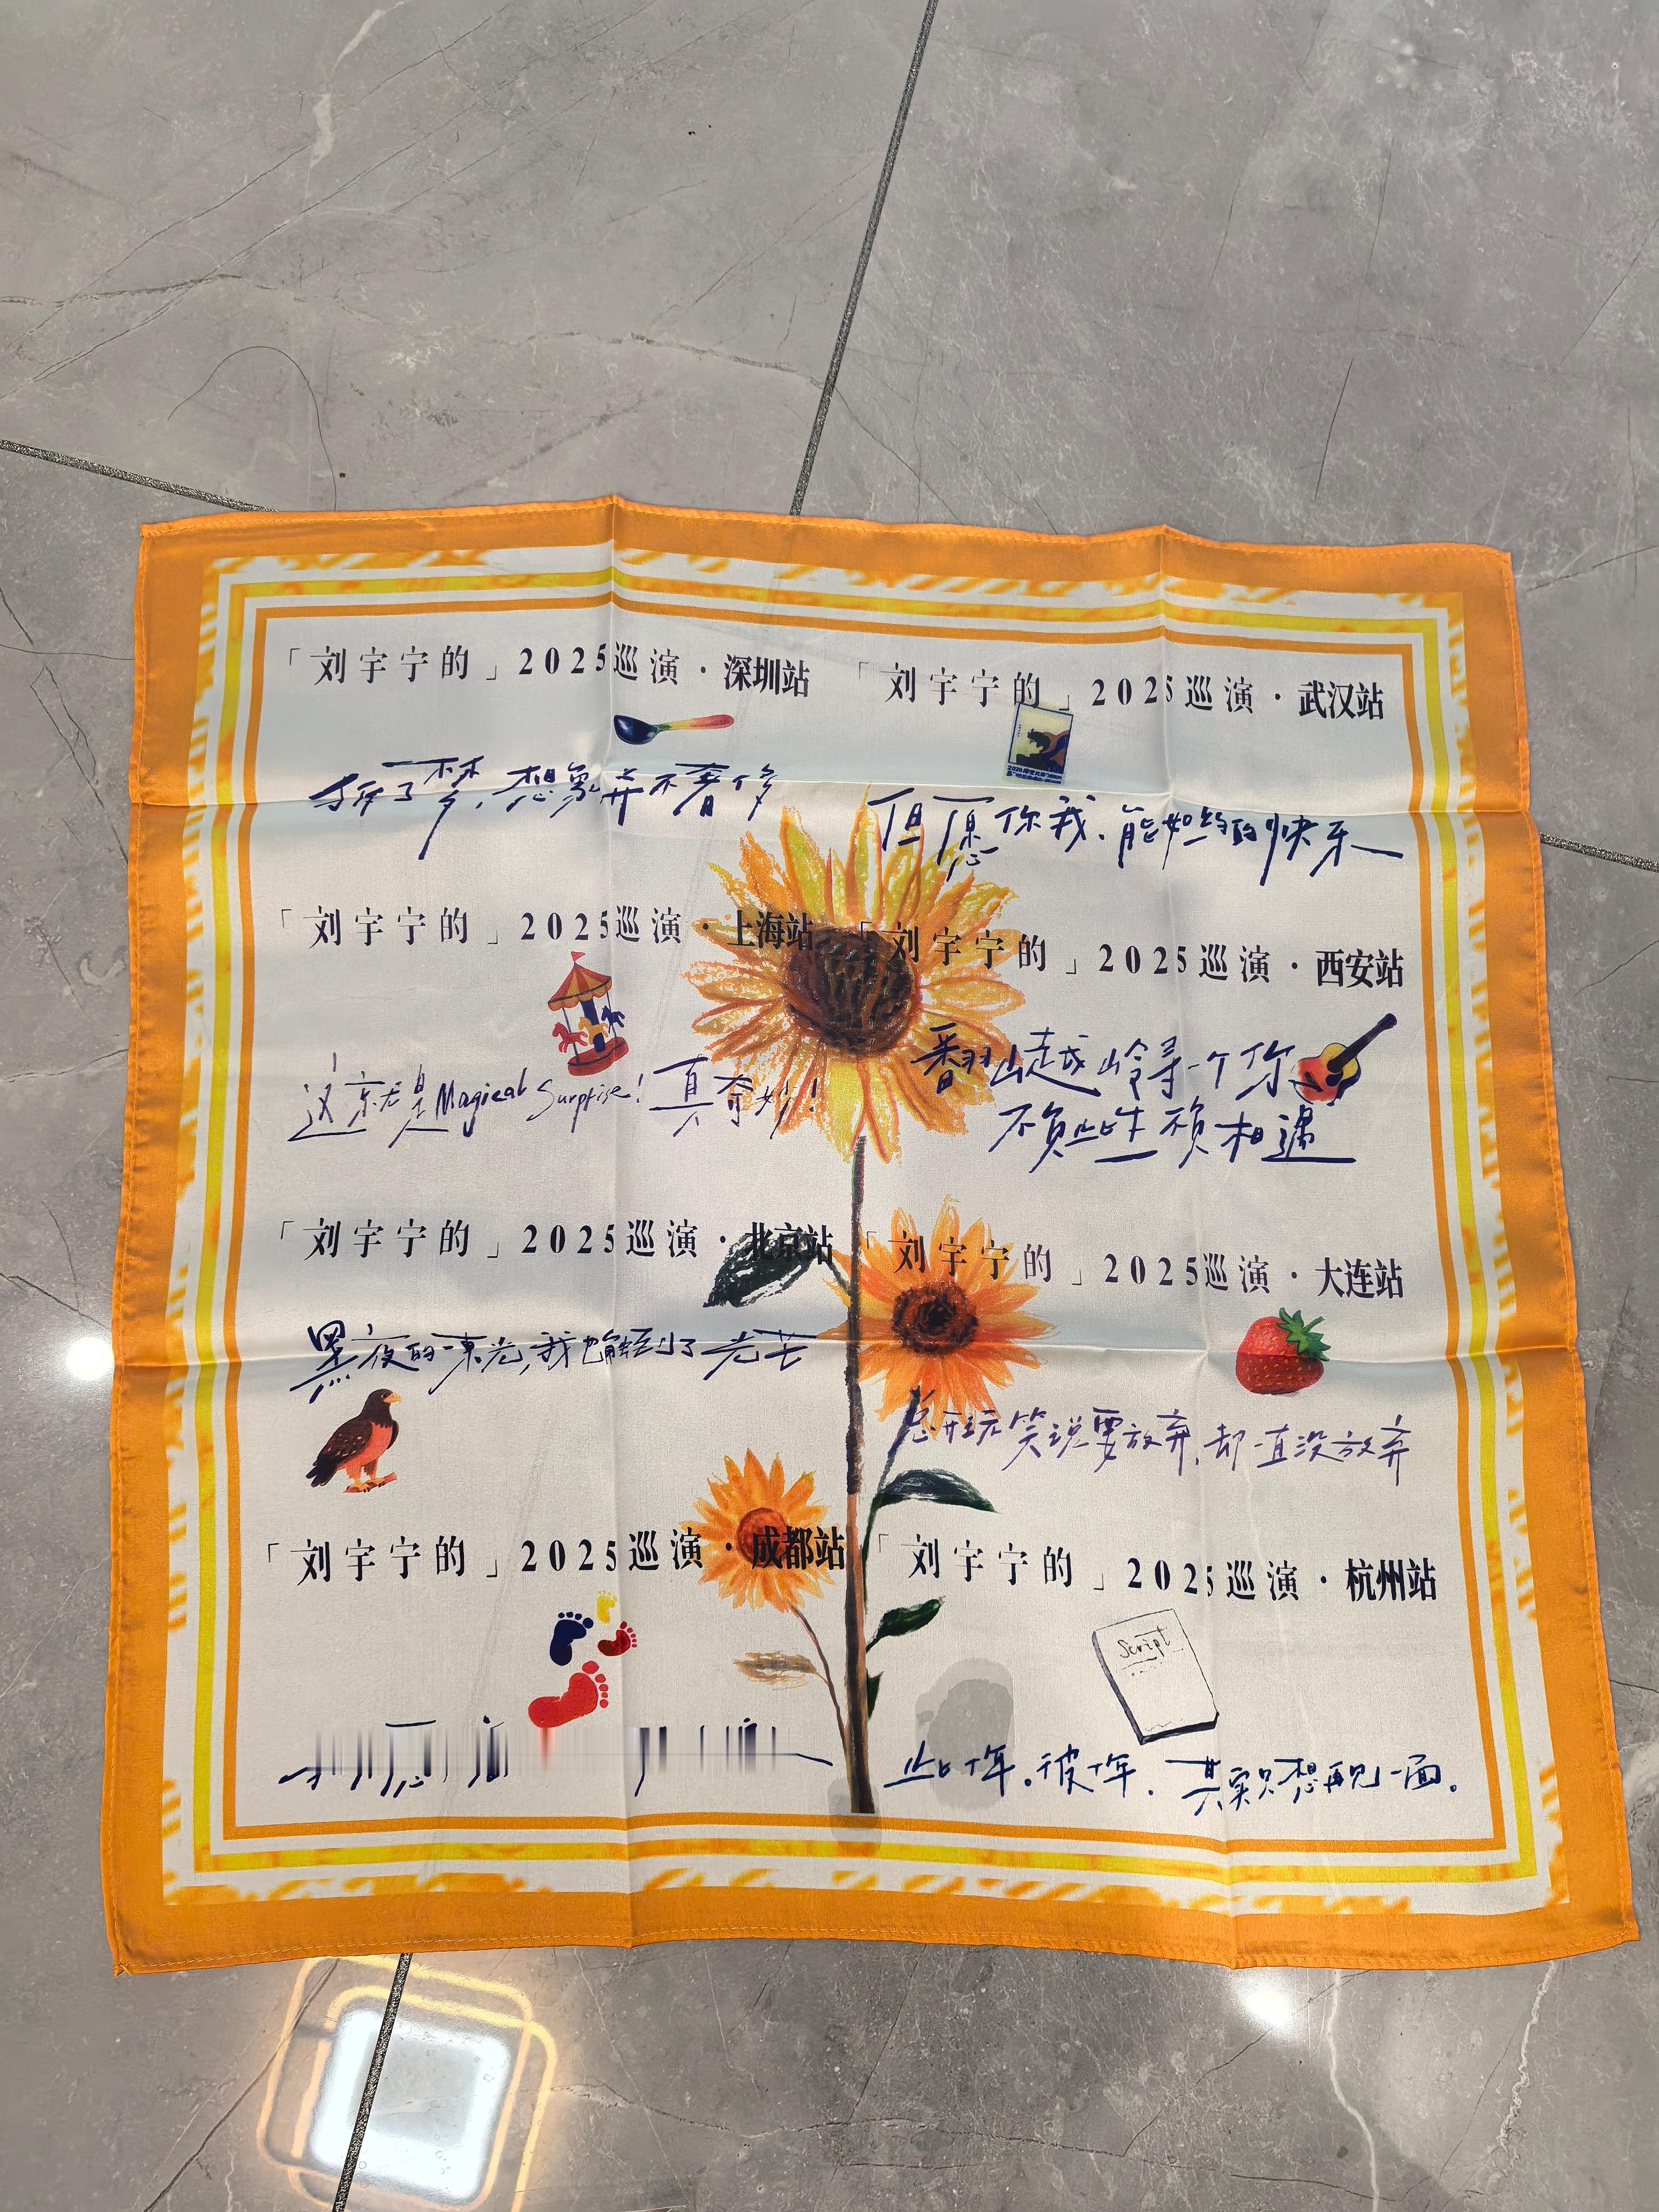 「刘宇宁的」2025巡演·深圳站
「刘宇宁的」2025巡演·武汉站
了梦，想象并不奢侈
但愿你我、能如约的快乐
「刘宇宁的」2025巡演·上海站
「刘宇宁的」2025巡演·西安站
这就是Magical Surprise！真奇妙！
翻山越岭寻一个你
不负此生不负相遇
「刘宇宁的」2025巡演·北京站
「刘宇宁的」2025巡演·大连站
黑夜的一束光，我也触到了光芒
总开玩笑说要放弃，却一直没放弃
「刘宇宁的」2025巡演·成都站
「刘宇宁的」2025巡演·杭州站
Script
此十年。彼十年．其实只想再见一面。